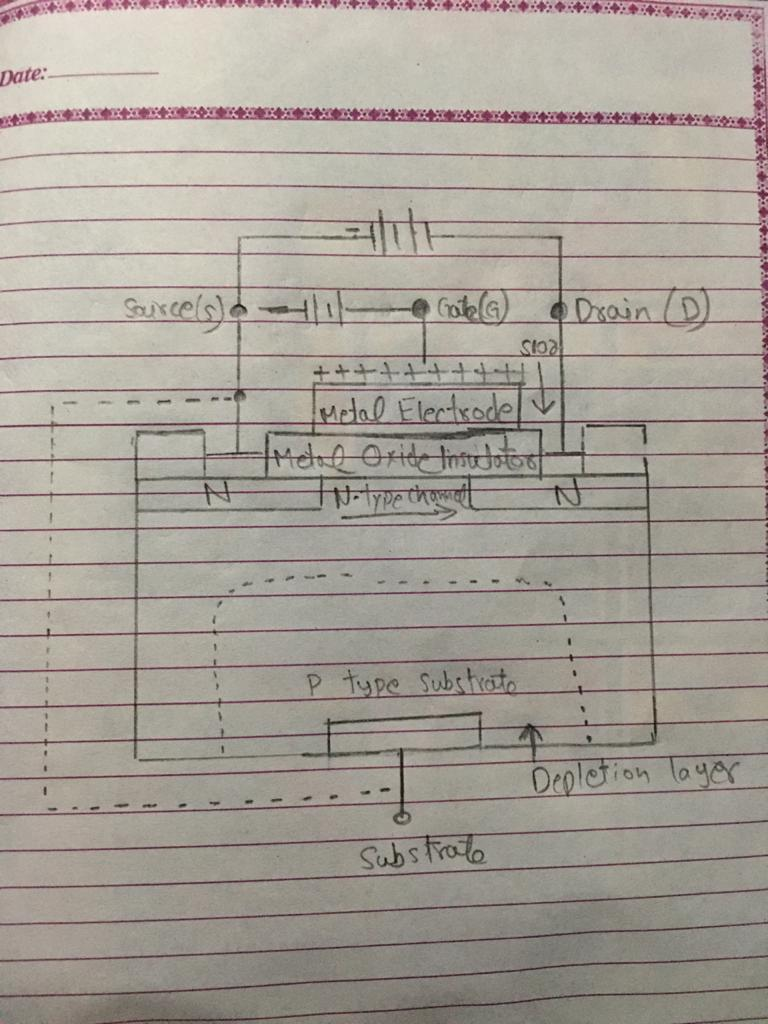 Date:
Source(s)
Gate(G)
Drain (D)
SiO2
+ + + + + + + + + +
Metal Electrode
Metal Oxide Insulator
N
N-type channel
N
P type substrate
Depletion layer
Substrate